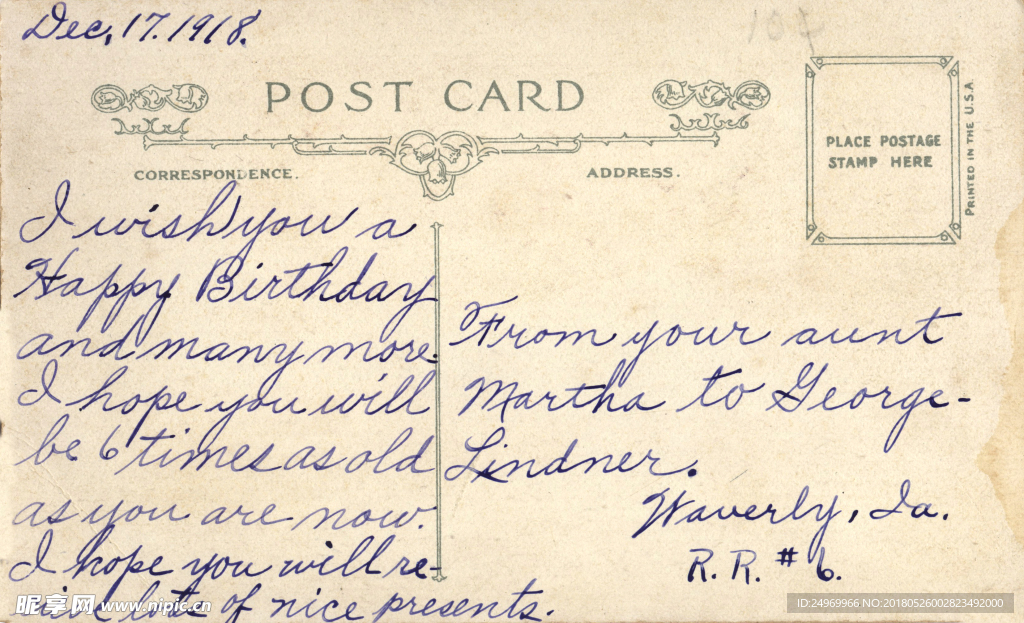 Dec, 17. 1918.
10¢
POST CARD
CORRESPONDENCE.
ADDRESS.
PLACE POSTAGE
STAMP HERE
PRINTED IN THE U.S.A
I wish you a
Happy Birthday
and many more.
I hope you will
be 6 times as old
as you are now.
I hope you will re-
lots of nice presents.
From your aunt
Martha to George-
Lindner.
Waverly, Ia.
R. R. # 6.
昵享网 www.nipic.cn
ID:24969966 NO:20180526002823492000